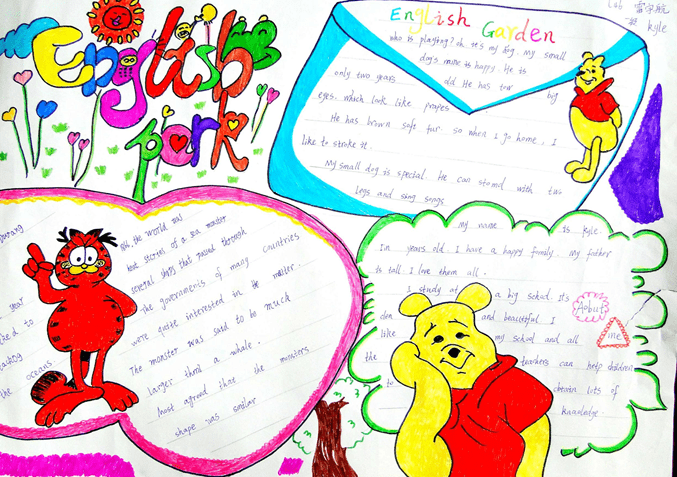 English
park
English Garden
Kyle
who is playing? oh it's my dog. My small
dog's name is happy. He is
only two years old He has tow big
eyes. which look like
He has brown soft fur. so when I go home, I
like to stroke it.
My small dog is special. He can stand with tws
legs and sing songs
the world was
stories of a sea monster
several ships that passed through
The governments of many countries
were quite interested in the matter.
The monster was said to be much
larger than a whale.
Most agreed that the monsters
shape was similar
year
to
the oceans.
my name is kyle.
In years old. I have a happy family. My father
is tall. I love them all.
I study at a big school. Its
den and beautiful. I
like my school and all
the teachers can help children
to obtain lots of
knowledge.
Aobut
me